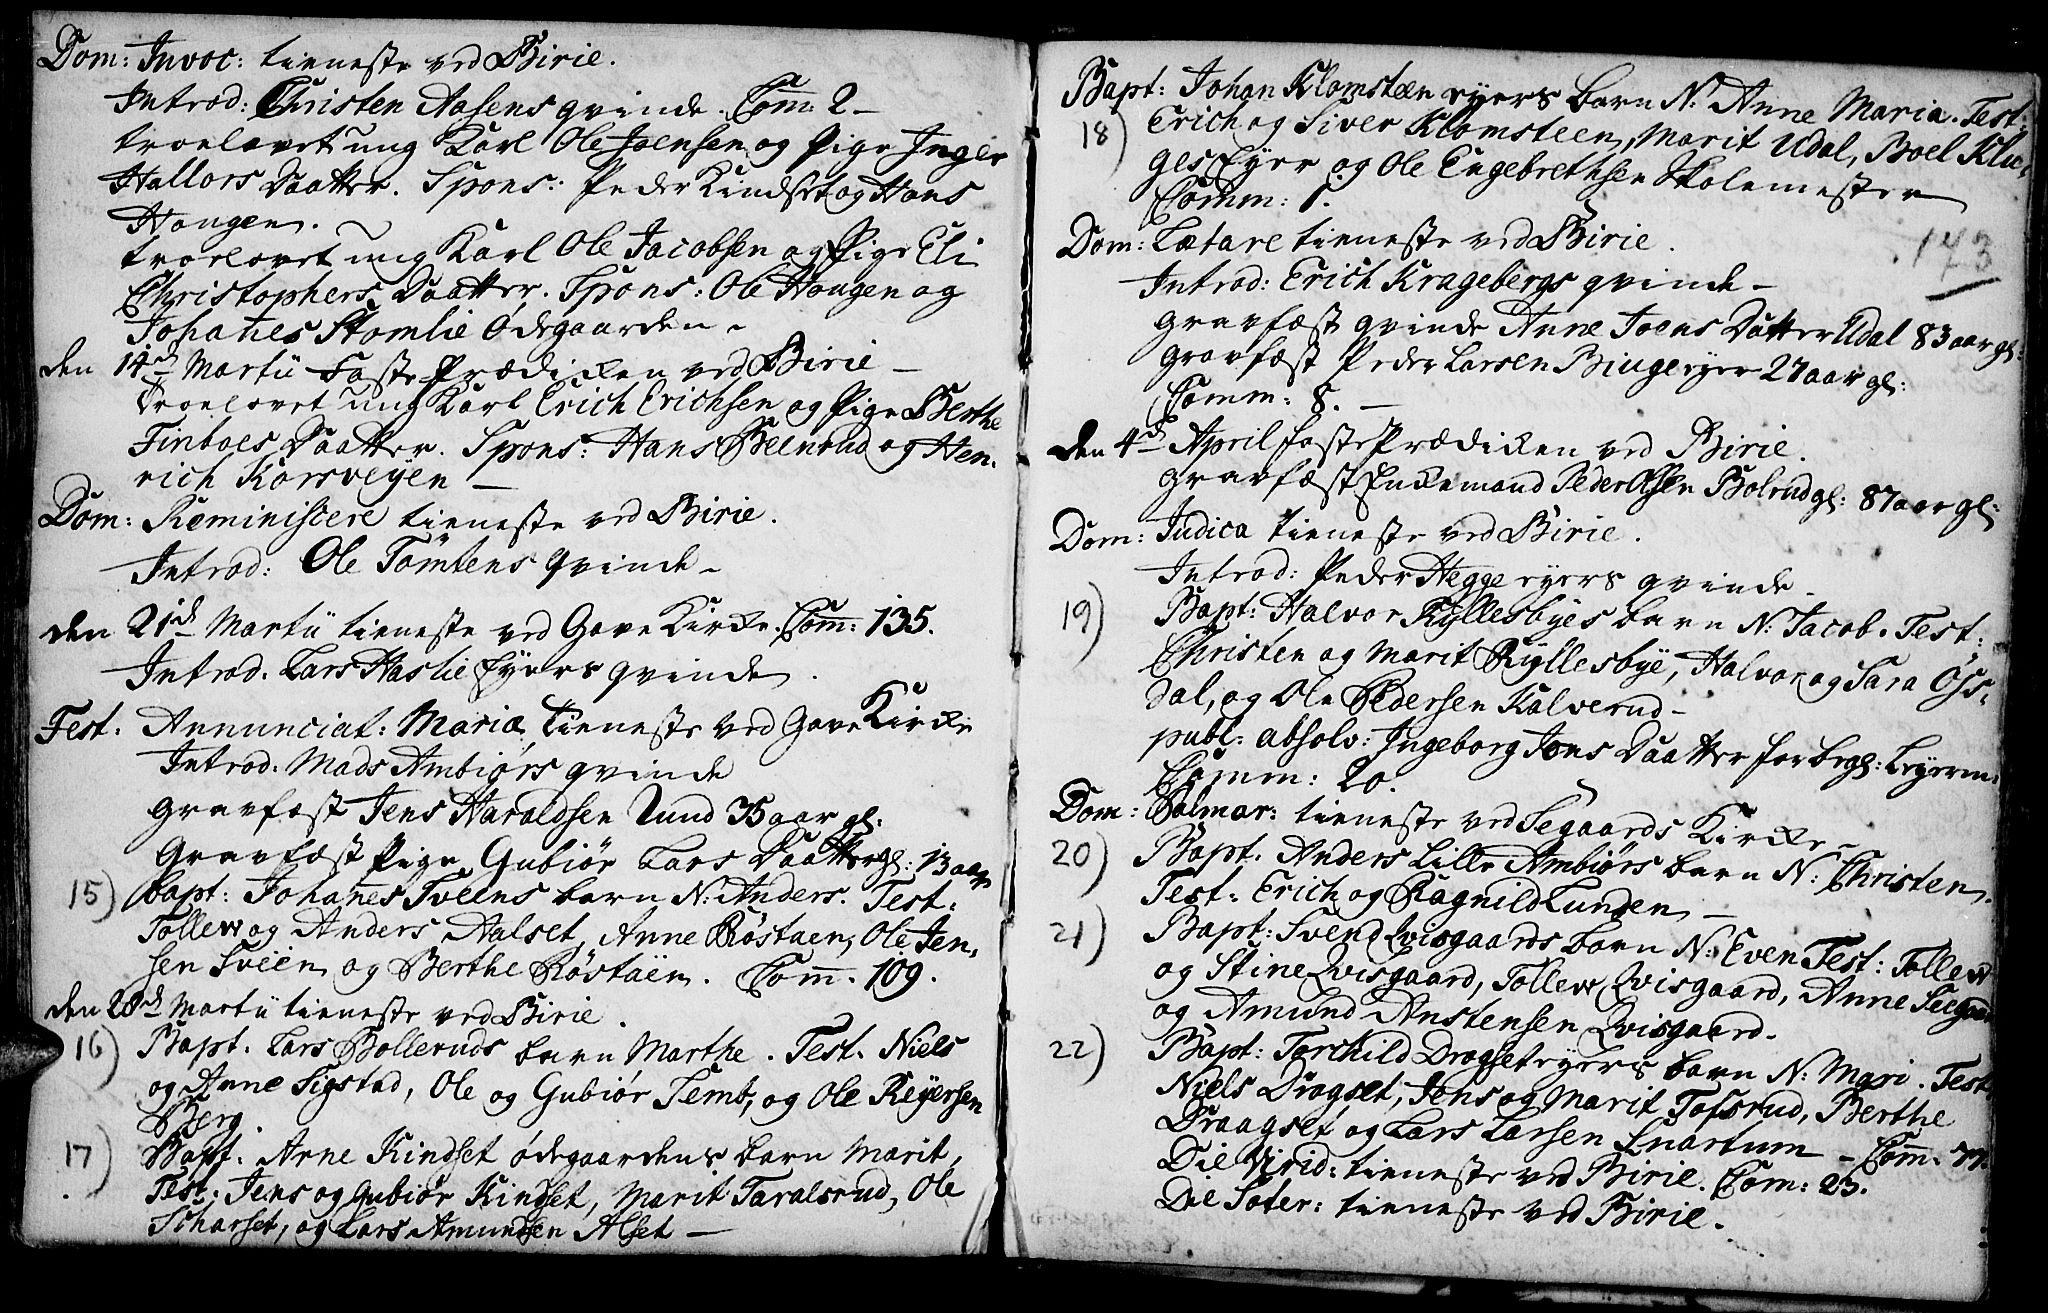 Dom: Invoc: tieneste ved Birie.
Introd: Christen Aasens qvinde. Com: 2 –
troelovet ung Karl Ole Joensen og Pige Inger
Hallors Daatter. Spons: Peder Kindset og Hans
Hougen.
troelovet ung Karl Ole Jacobsen og Pige Eli
Christophers Daatter. Spons: Ole Hougen og
Johañes Stomlie Ødegaarden –
den 14d Martii Faste Prædiken ved Birie –
troelovet ung Karl Erich Erichsen og Pige Berthe
Finboes Daatter. Spons: Hans Beenrud og Hen-
rich Korsvegen –
Dom: Reminiscere tieneste ved Birie.
Introd: Ole Tömtens qvinde –
den 21d Martii tieneste ved Gave Kirke. Com: 135.
Introd. Lars Haslie Eyers qvinde.
Fest. Annunciat: Mariæ, tieneste ved Gave Kirke
Introd. Mads Ambiørs qvinde
gravfæst Jens Haraldsen Lund 35 aar gl:
Gravfæst Pige Gubiør Lars Daatter gl: 13 aar
15) bapt: Johañes Sveens barn N: Anders. Test:
Tollew og Anders Aalset, Anne Röstaen, Ole Jen-
sen Sveen og Berthe Röstaën. Com. 109.
den 28d Martii tieneste ved Birie.
16) Bapt. Lars Bolleruds barn Marthe. Test. Niels
og Anne Sigstad, Ole og Gubiør Semb, og Ole Reyersen
Berg.
17) Bapt: Arne Kindset ødegaardens barn Marit,
Test: Jens og Gubiør Kindset, Marit Taralsrud, Ole
Scharset, og Lars Amundsen Alset –
Bapt: Johan Klomsteen eyers barn N: Anne Maria. Test:
18) Erich og Siver Klomsteen, Marit Udal, Boel Klu-
ges Eyer og Ole Engebrethsen Skolemester
Comm: 1.
Dom: Lætare tieneste ved Birie.
143
Introd: Erich Kragebergs qvinde –
gravfæst qvinde Anne Joens Datter Udal 83 aar gl:
gravfæst Peder Larsen Biuge eyer 27 aar gl:
Comm: 8. –
den 4d April Faste Prædiken ved Birie.
gravfæst Enkemand Peder Olsen Bolrud gl: 87 aar gl:
Dom: Judica tieneste ved Birie.
Introd: Peder Hegge eyers qvinde –
19) Bapt: Halvor Kyllesbyes barn N: Jacob. Test:
Christen og Marit Kyllesbye, Halvor og Sara Ops-
dal, og Ole Pedersen Kalverud –
publ: absolv: Ingeborg Jons Daatter for begl: Leyerm:
Comm: 20.
Dom: Palmar: tieneste ved Segaards Kirke –
20) Bapt. Anders Lille Ambiørs barn N: Christen.
Test: Erich og Ragnild Lunden –
21) Bapt: Svend Qvisgaards barn N: Even Test: Tollew
og Stine Qvisgaard, Tollew Qvisgaard, Anne Seegaard
og Amund Anstensen Qvisgaard.
22) Bapt: Torchild Dragset eyers barn N: Mari. Test:
Niels Dragset, Jens og Marit Tofsrud, Berthe
Draagset og Lars Larsen Snartum – Com: 77.
Die Virid: tieneste ved Birie. Com: 23.
Die Soter: tieneste ved Birie.